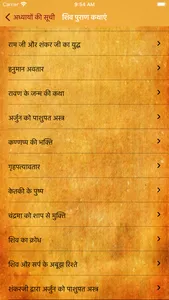 9:54 AM
अध्यायों की सूची
शिव पुराण कथाएं
राम जी और शंकर जी का युद्ध
हनुमान अवतार
रावण के जन्म की कथा
अर्जुन को पाशुपत अस्त्र
कण्णाप्प की भक्ति
गृहपत्यावतार
केतकी के पुष्प
चंद्रमा को शाप से मुक्ति
शिव का क्रोध
शिव और सर्प के अबूझ रिश्ते
शंकरजी द्वारा अर्जुन को पाशुपत अस्त्र